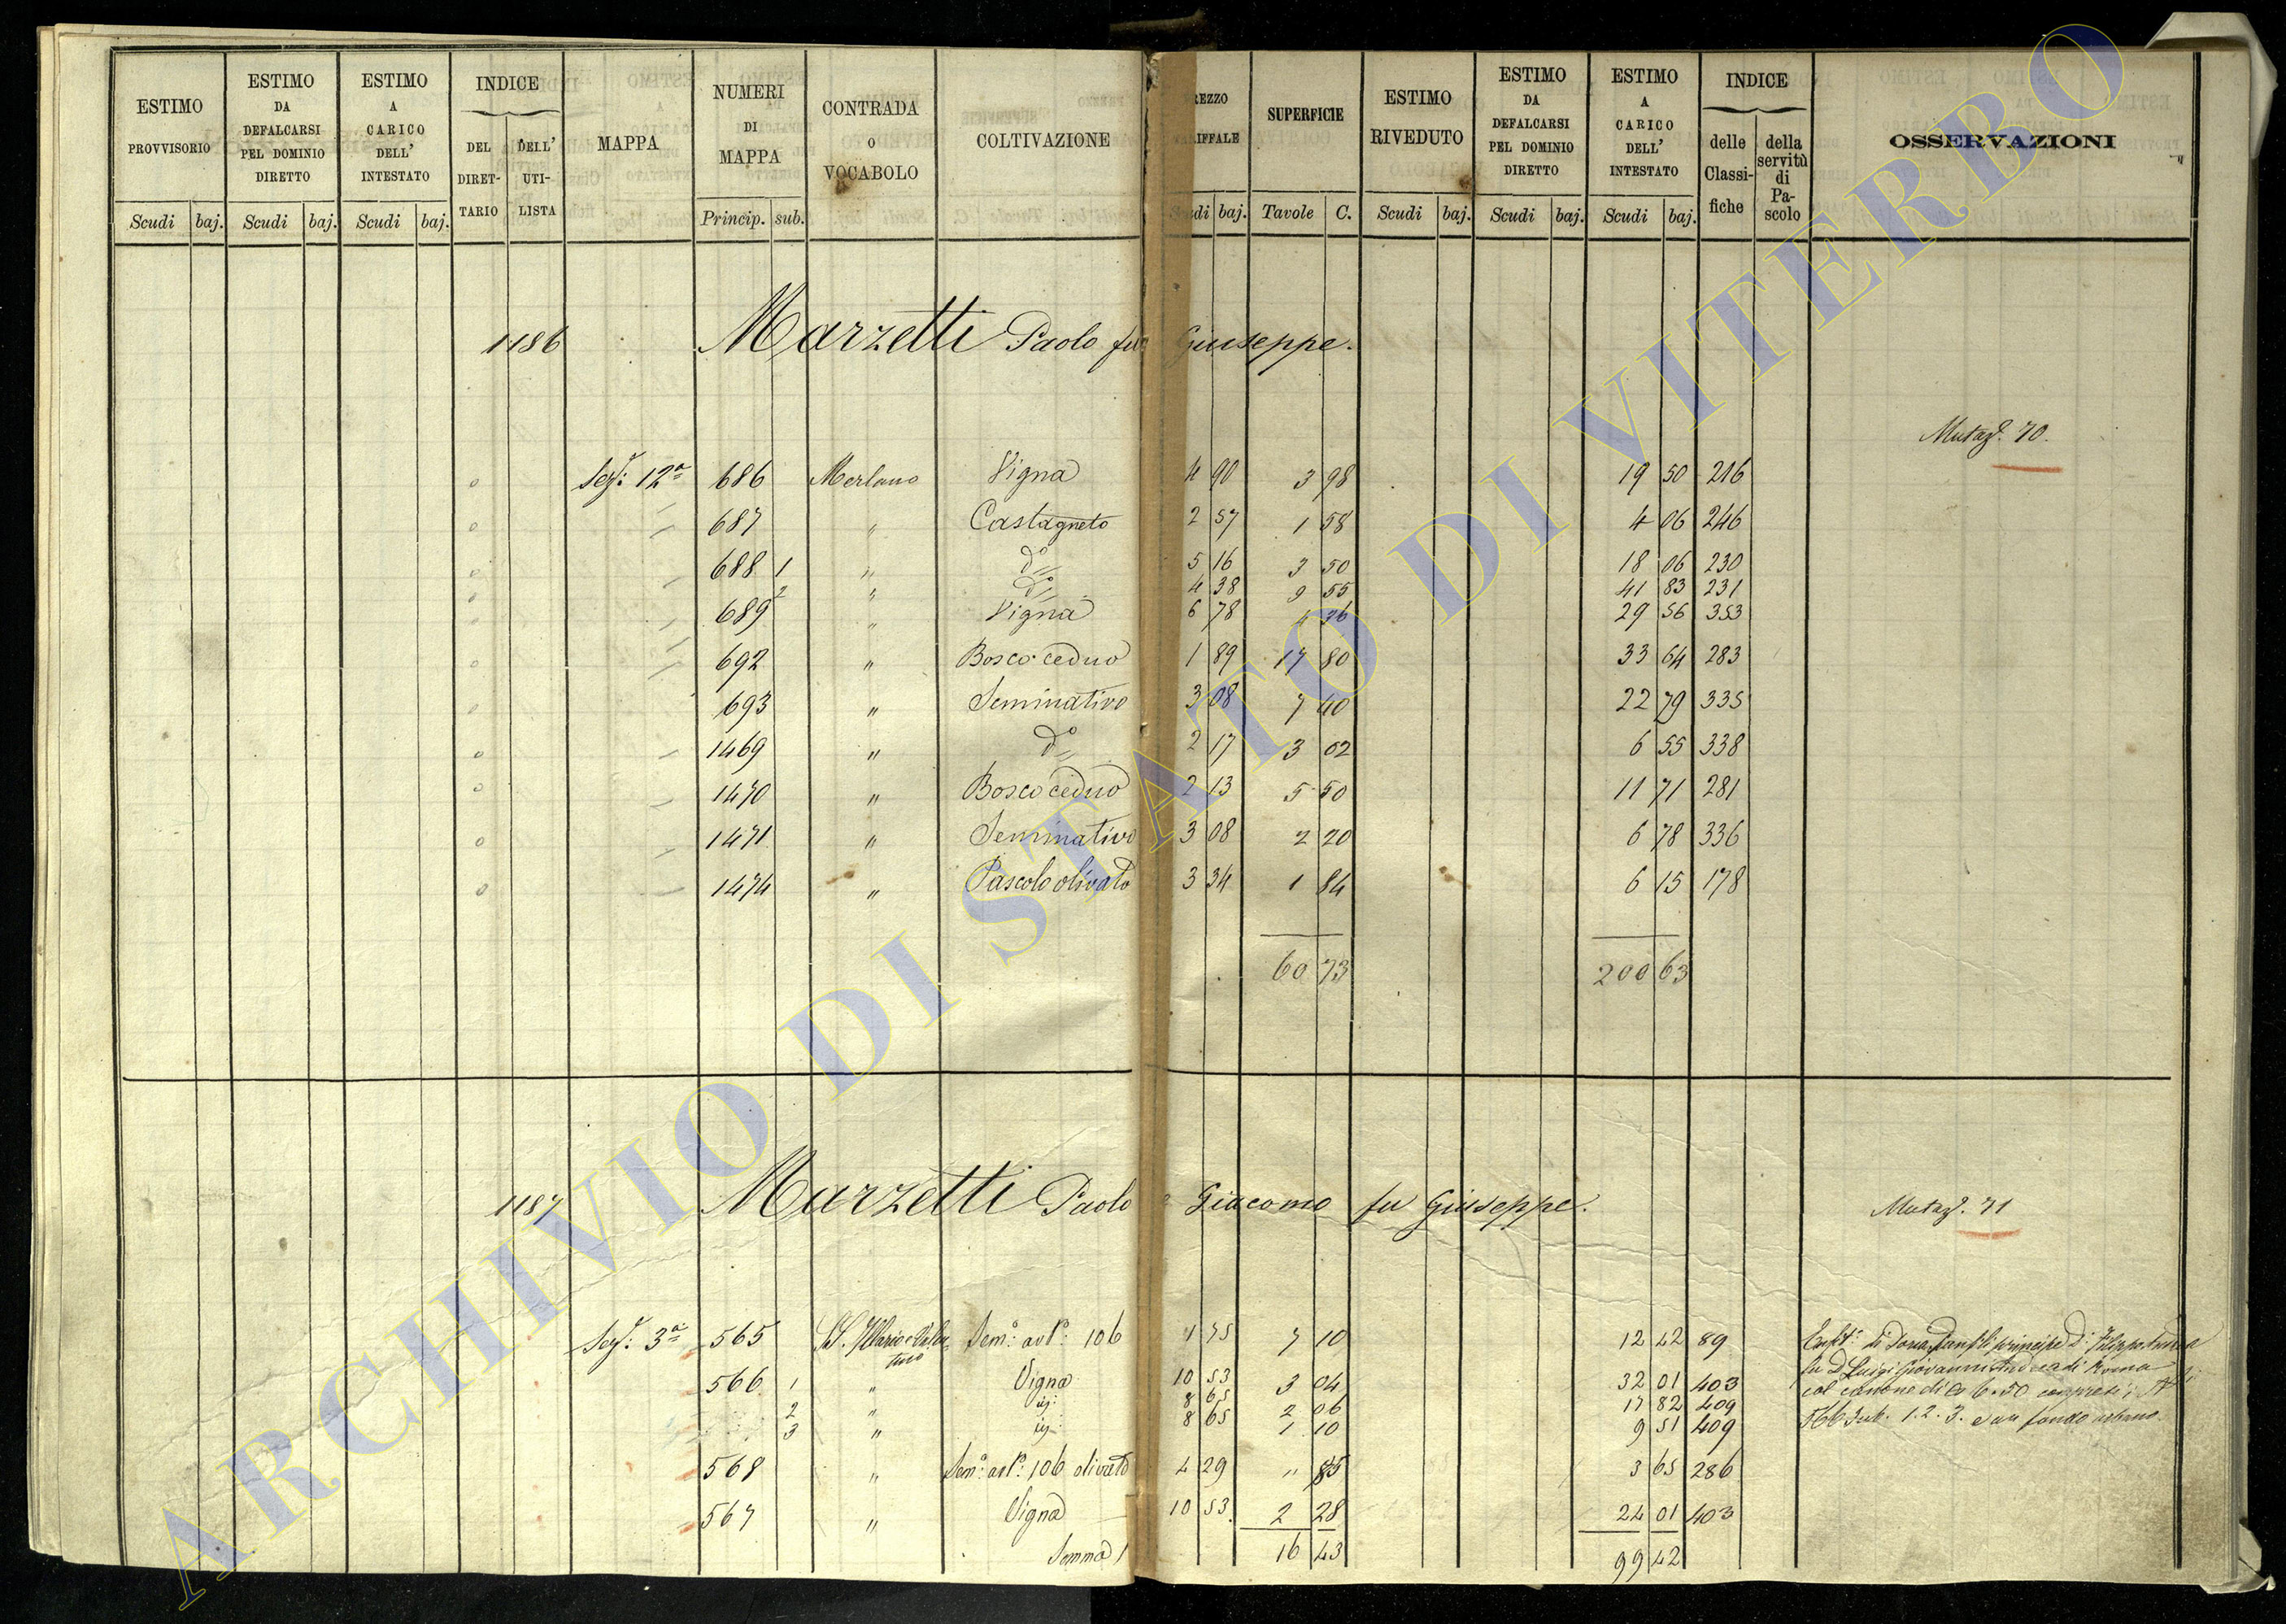 ESTIMO PROVVISORIO | ESTIMO DA DEFALCARSI PEL DOMINIO DIRETTO | ESTIMO A CARICO DELL' INTESTATO | INDICE DEL DIRETTARIO | DELL' UTILISTA | MAPPA | NUMERI DI MAPPA | CONTRADA O VOCABOLO | COLTIVAZIONE | REZZO RIFFALE | SUPERFICIE | ESTIMO RIVEDUTO | ESTIMO DA DEFALCARSI PEL DOMINIO DIRETTO | ESTIMO A CARICO DELL' INTESTATO | INDICE delle Classifiche | della servitù di Pascolo | OSSERVAZIONI
Scudi baj. Scudi baj. Scudi baj. Princip. sub. baj. Tavole C. Scudi baj. Scudi baj. Scudi baj.
1186 Marzetti Paolo fu Giuseppe.
Mutaz. 70.
Sez: 12a 686 Merlano Vigna 4 90 3 98 19 50 216
687 " Castagneto 2 57 1 58 4 06 246
688 1 " do 5 16 3 50 18 06 230
2 " do 4 38 9 55 41 83 231
689 " Vigna 6 78 4 36 29 56 353
692 " Bosco ceduo 1 89 17 80 33 64 283
693 " Seminativo 3 08 7 40 22 79 335
1469 " do 2 17 3 02 6 55 338
1470 " Bosco ceduo 2 13 5 50 11 71 281
1471 " Seminativo 3 08 2 20 6 78 336
1474 " Pascolo olivato 3 34 1 84 6 15 178
60 73 200 63
1187 Marzetti Paolo e Giacomo fu Giuseppe.
Mutaz. 71
Sez: 3a 565 SS. Ilario e Valentino Sem: 106 1 75 7 10 12 42 89
566 1 " Vigna 10 53 3 04 32 01 403
2 " 8 65 2 06 17 82 409
3 " 8 65 1 10 9 51 409
568 " Sem: 106 olivato 4 29 " 85 3 65 286
567 " Vigna 10 53 2 28 24 01 403
Somma 16 43 99 42
principe D. Filippo Andrea
fu D. Luigi Giovanni Andrea di Roma
col canone di 6.50 compresi i
566 sub. 1.2.3. e un fondo urbano.
ARCHIVIO DI STATO DI VITERBO